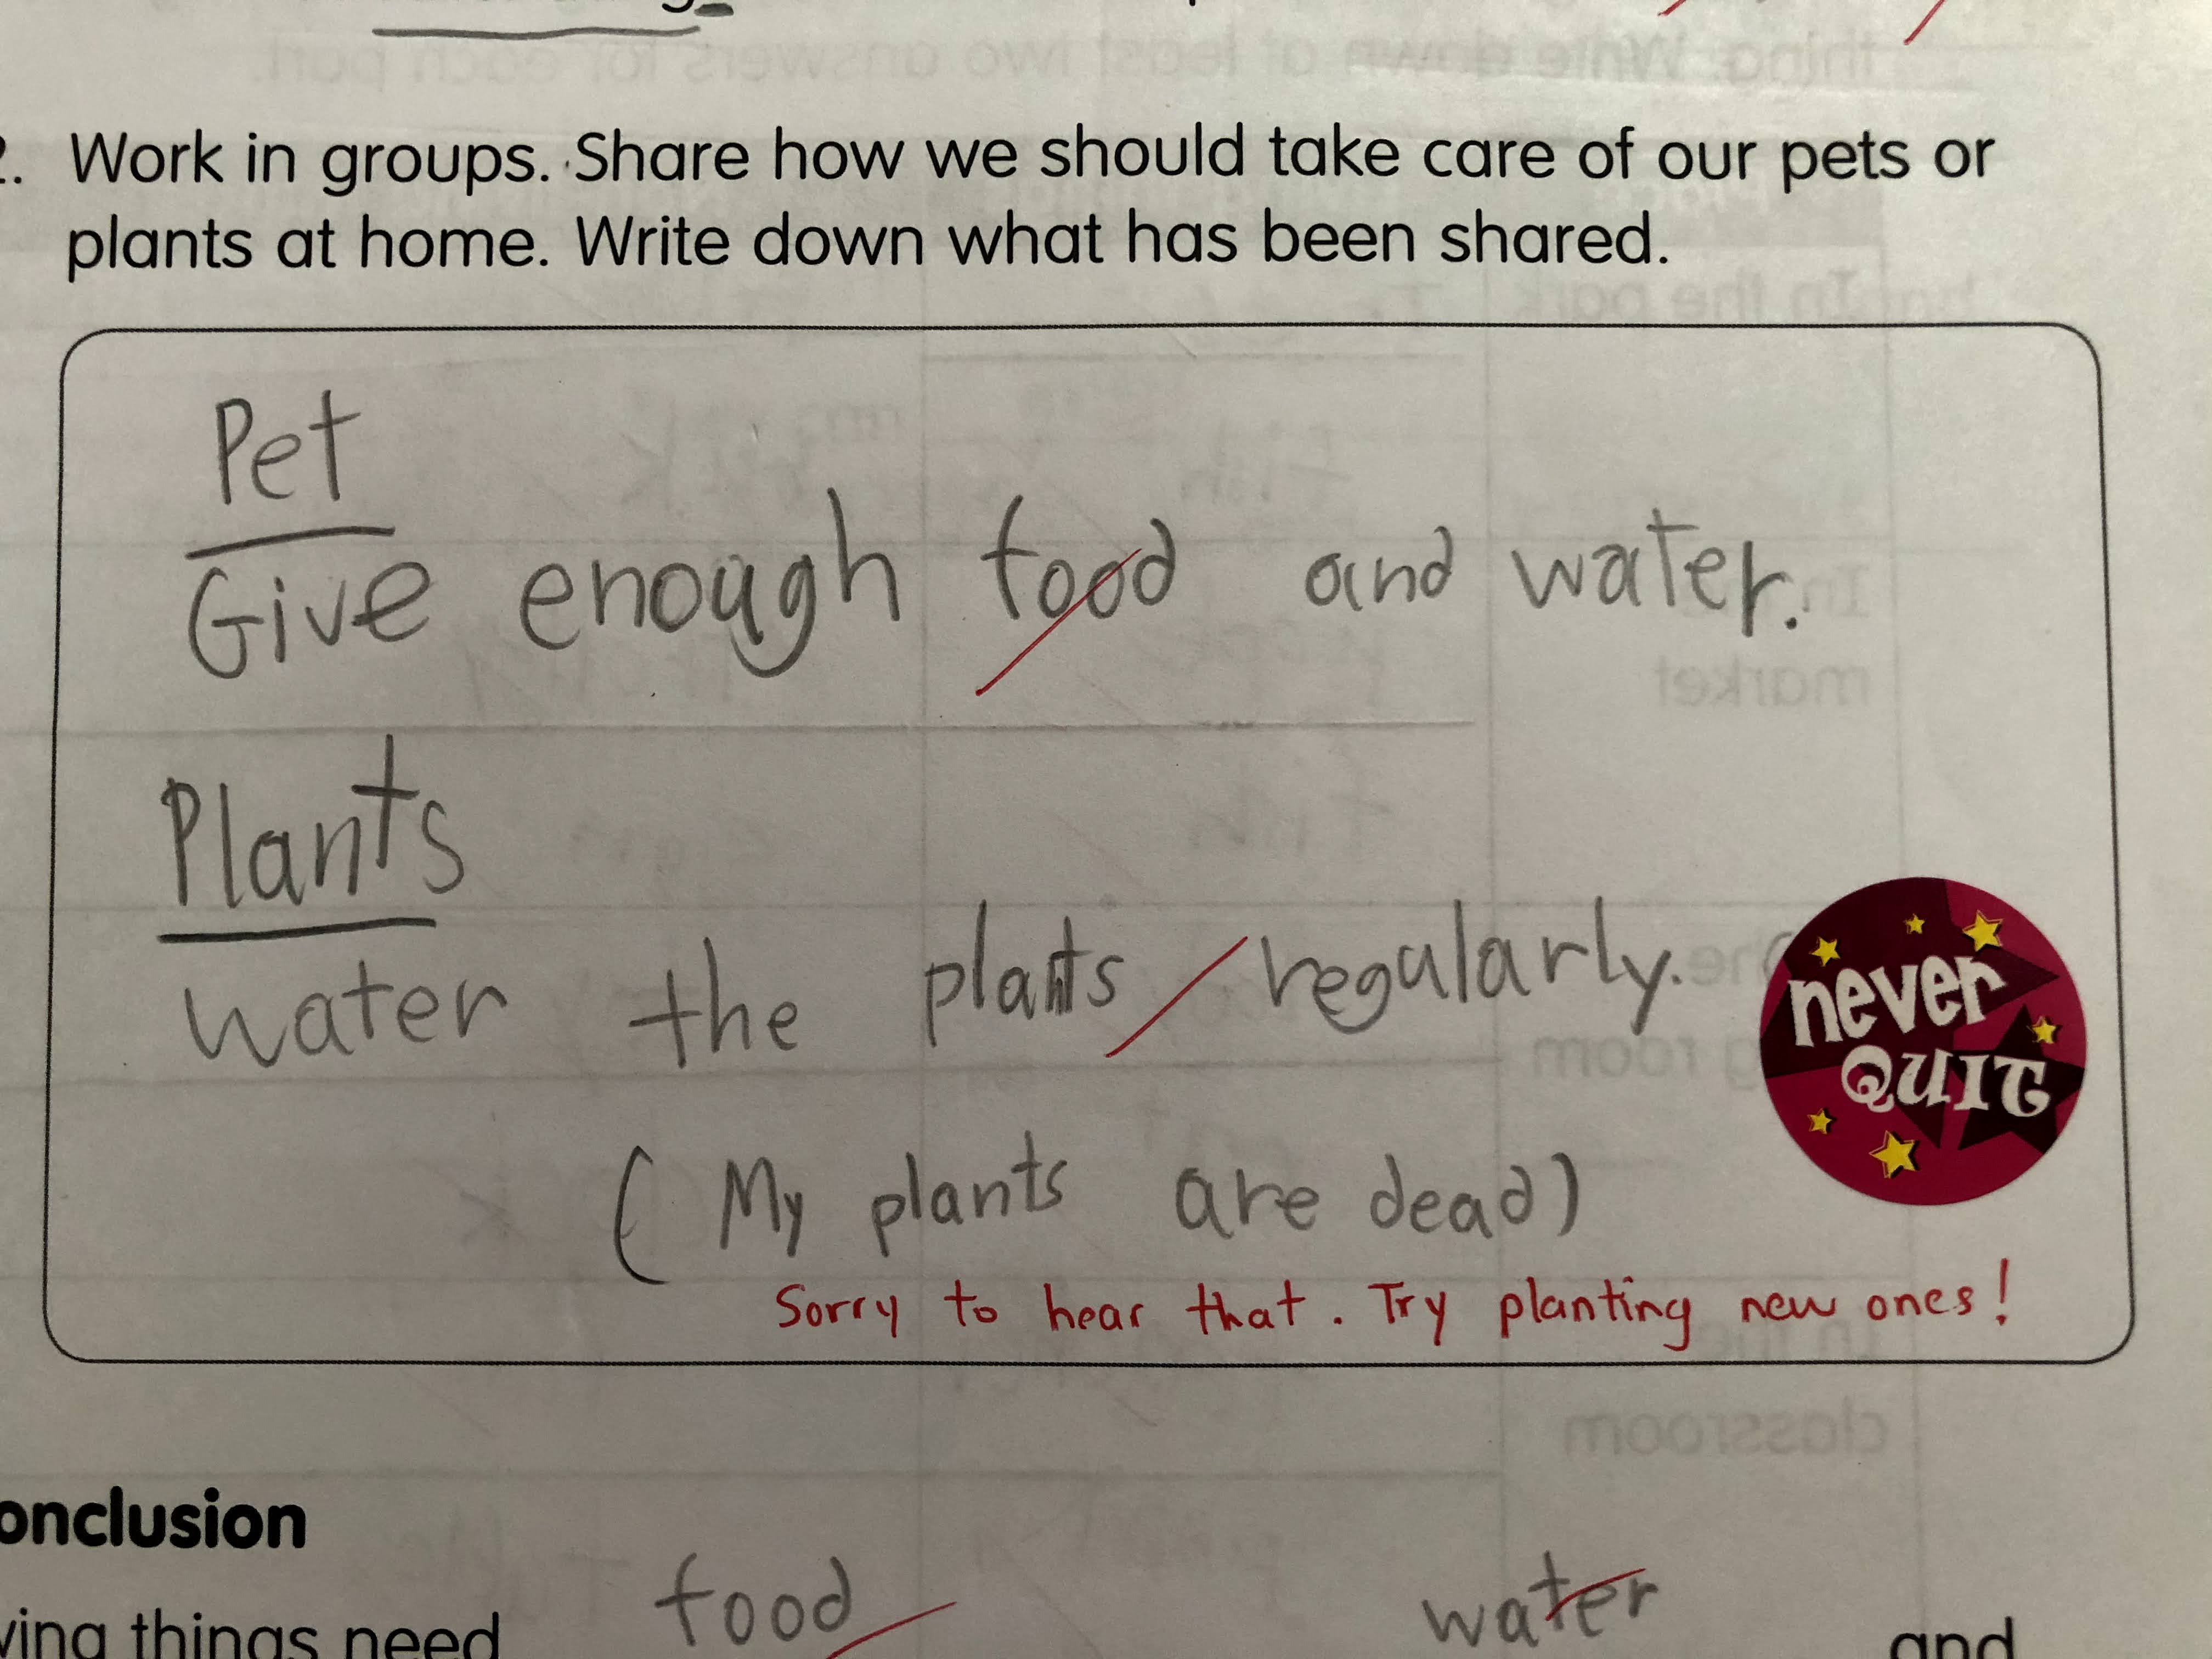 2. Work in groups. Share how we should take care of our pets or
plants at home. Write down what has been shared.
Pet
Give enough food and water.
Plants
water the plants regularly.
never
QUIT
( My plants are dead)
Sorry to hear that. Try planting new ones!
onclusion
food water
ving things need and